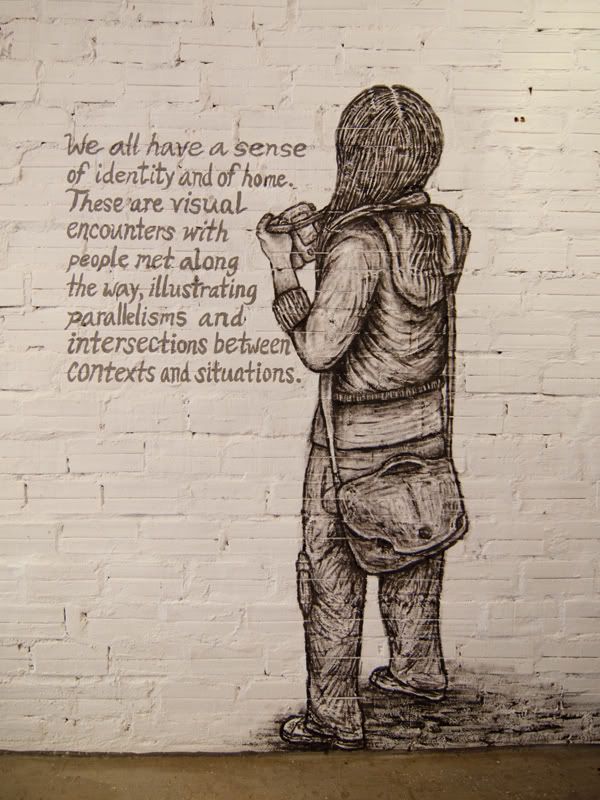 We all have a sense
of identity and of home.
These are visual
encounters with
people met along
the way, illustrating
parallelisms and
intersections between
contexts and situations.